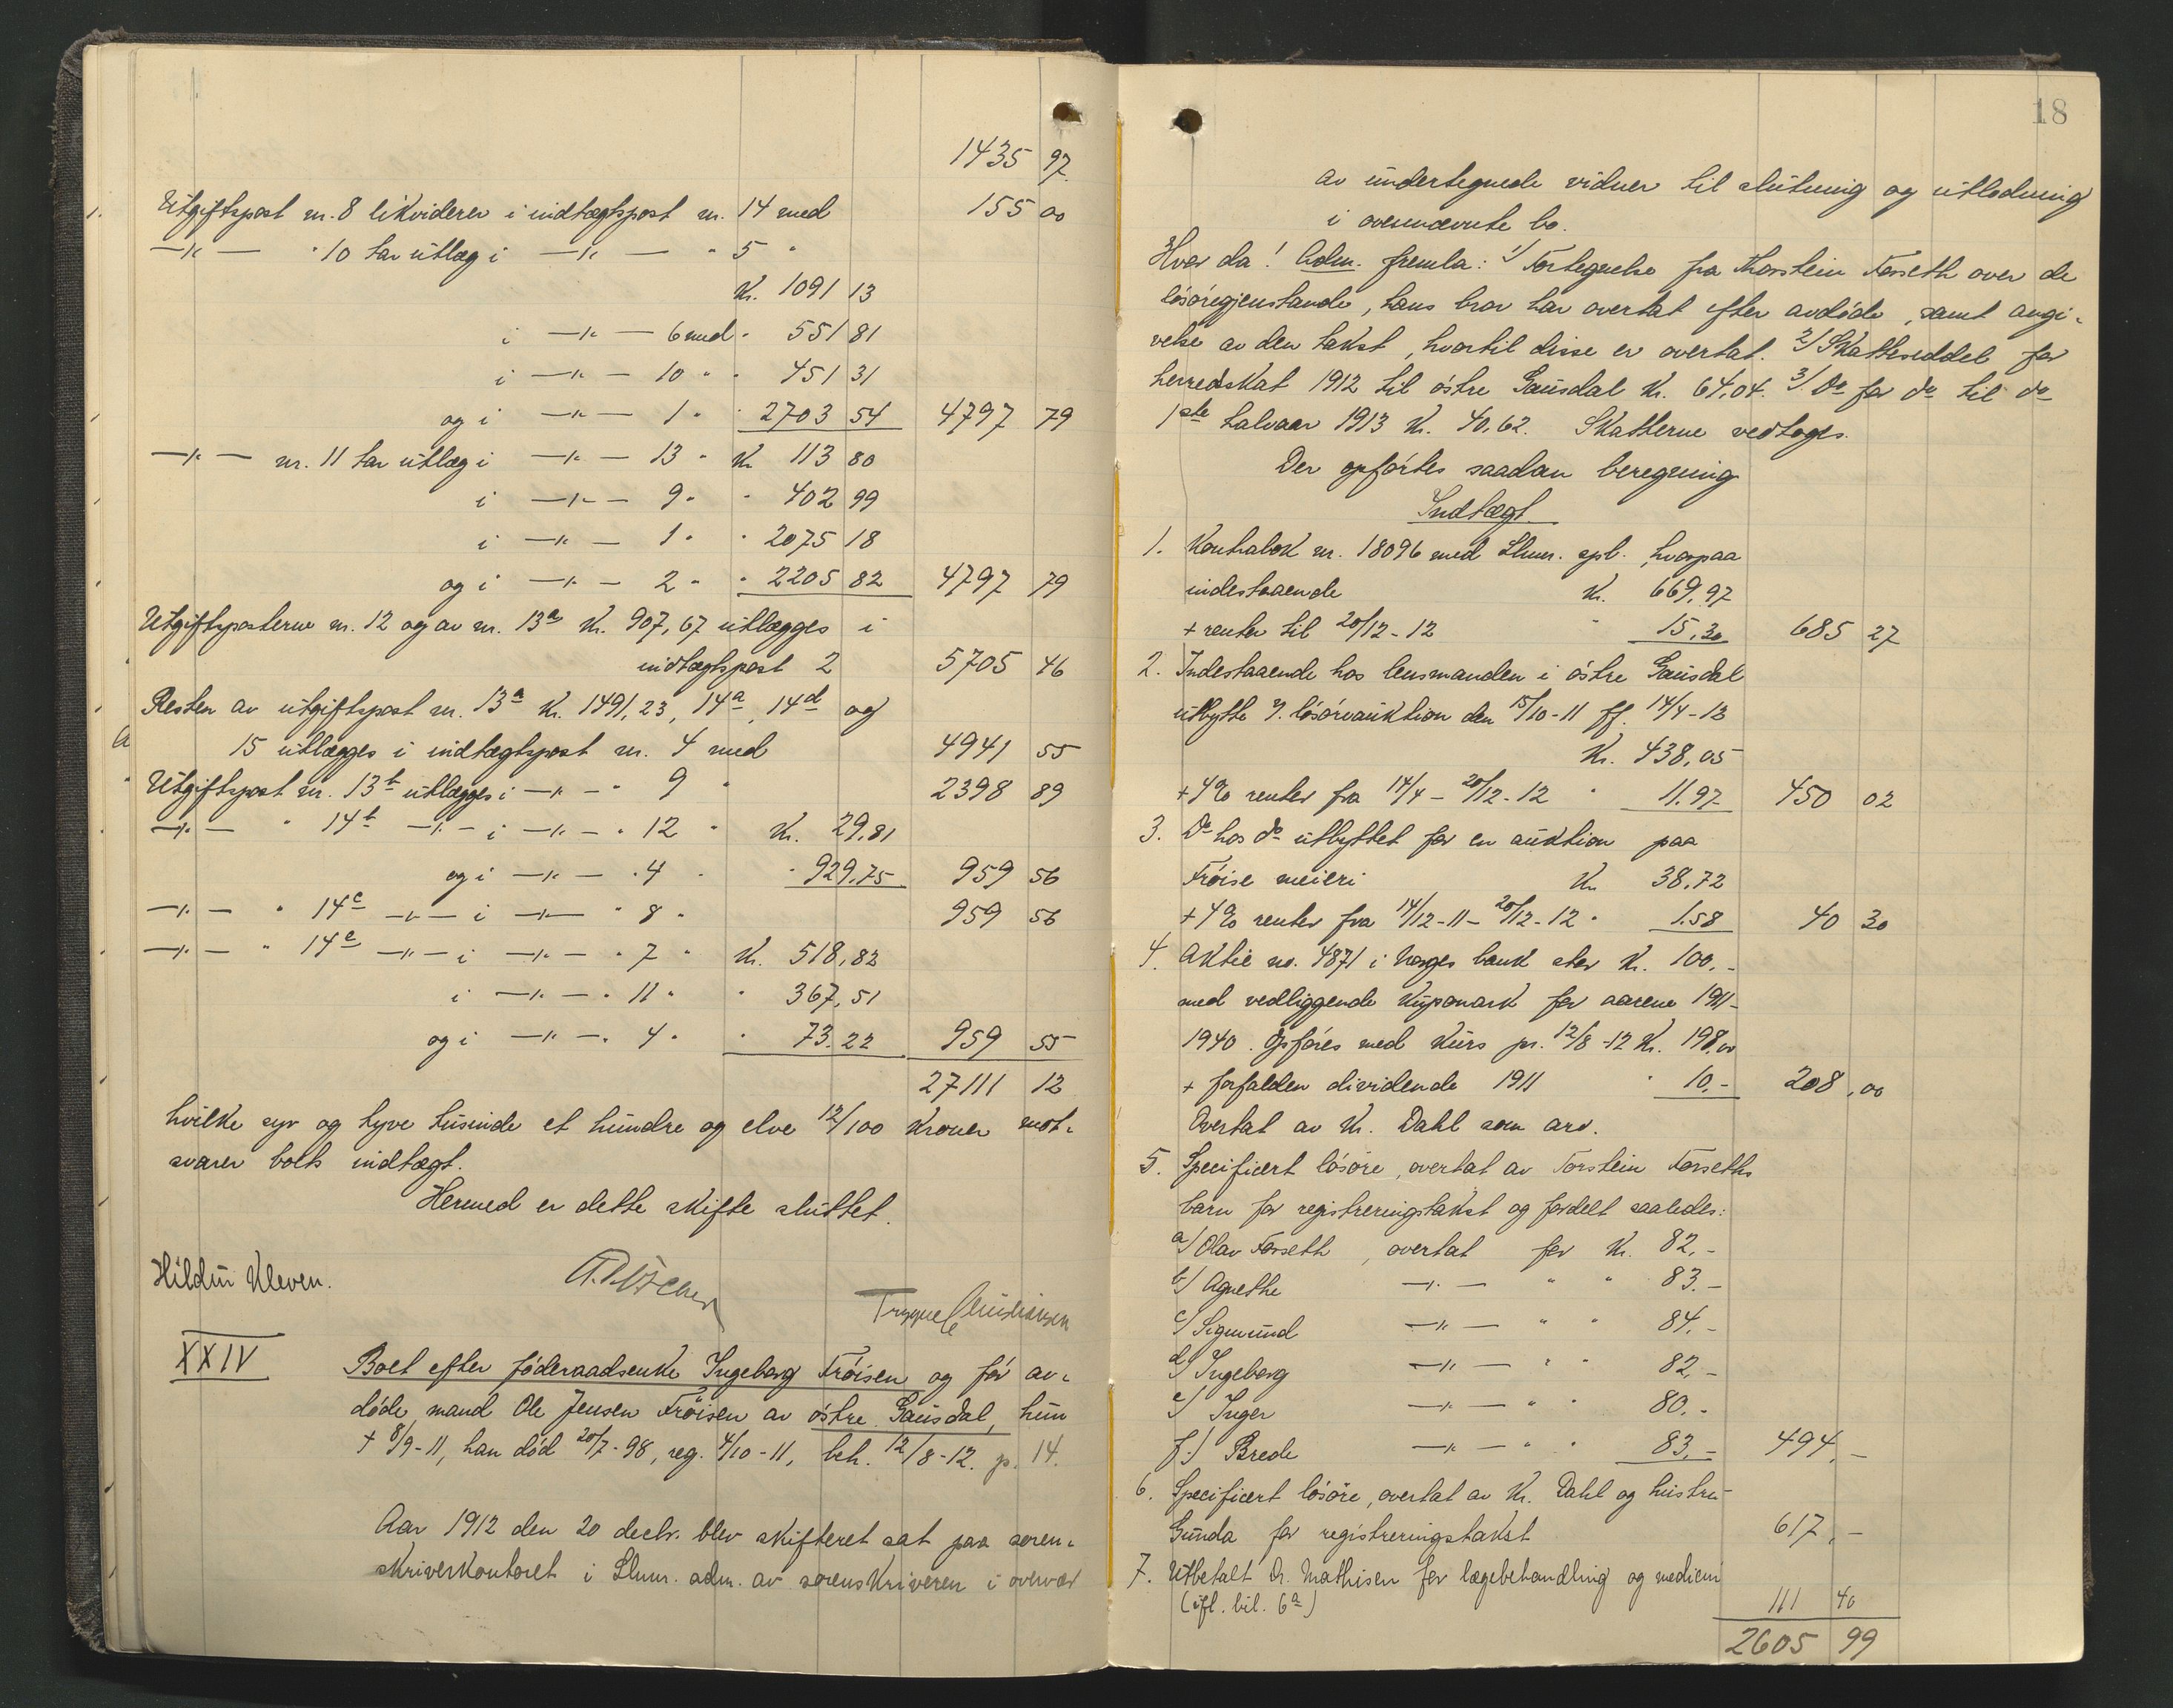 1435 97
1. Utgiftspost nr. 8 likviderer i indtægtspost nr. 14 med 155 00
—"— " 10 har utlæg i —"— " 5 "
Kr. 1091 13
i —"— 6 med " 551 81
i —"— 10 " " 451 31
og i —"— 1 " " 2703 54 4797 79
—"— nr. 11 har utlæg i —"— 13 " Kr 113 80
i —"— 9 " " 402 99
i —"— 1 " " 2075 18
og i —"— 2 " " 2205 82 4797 79
Utgiftsposterne nr. 12 og av nr. 13a Kr. 907,67 utlægges i
indtægtspost 2 5705 46
Resten av utgiftspost nr. 13a Kr. 1491,23, 14a, 14d og
15 utlægges i indtægtspost nr. 4 med 4941 55
Utgiftspost nr. 13b utlægges i —"— " 9 " 2398 89
—"— " 14b —"— i —"— " 12 " Kr. 29,81
og i —"— " 4 " " 929,75 959 56
—"— " 14c —"— i —"— " 8 " 959 56
—"— " 14e —"— i —"— " 7 " Kr. 518,82
i —"— " 11 " " 367,51
og i —"— " 4 " " 73.22 959 55
27111 12
hvilke syv og tyve tusinde et hundre og elve 12/100 kroner mot-
svarer boets indtægt.
Hermed er dette skifte sluttet.
Hildur Kleven.
Trygve Christiansen
XXIV Boet efter føderaadsenke Ingeborg Frøisen og før av-
døde mand Ole Jensen Frøisen av østre Gausdal, hun
† 8/9-11, han død 20/7-98, reg. 4/10-11, beh. 12/8-12. p. 14.
Aar 1912 den 20 decbr. blev skifteret sat paa soren-
skriverkontoret i Lhmr. adm. av sorenskriveren i overvær
18
av undertegnede vidner til slutning og utlodning
i ovennævnte bo.
Hvor da! Adm. fremla: 1/ Fortegnelse fra Thorstein Forseth over de
løsøregjenstande, hans barn har overtat efter avdøde, samt angi-
velse av den takst, hvortil disse er overtat. 2/ Skatteseddel for
herredskat 1912 til østre Gausdal Kr. 64,04. 3/ Do for do til do
1ste halvaar 1913 Kr. 40,62. Skatterne vedtoges.
Der opførtes saadan beregning
Indtægt
1. Kontrabok nr. 18096 med Lhmr. spb., hvorpaa
indestaaende Kr. 669,97
+ renter til 20/12-12 " 15,30 685 27
2. Indestaaende hos lensmanden i østre Gausdal
utbytte v. løsøreauktion den 15/10-11 ff. 14/4-12
Kr. 438,05
+ 4% renter fra 14/4 - 20/12-12 " 11.97 450 02
3. Do hos do utbyttet for en auktion paa
Frøise meieri Kr 38,72
+ 4% renter fra 14/12-11 - 20/12-12 " 1.58 40 30
4. Aktie no. 4871 i Norges bank stor Kr. 100,-
med vedliggende kuponark for aarene 1911-
1940. Opføres med kurs pr. 12/8-12 Kr. 198,00
+ forfalden dividende 1911 " 10,- 208,00
Overtat av Kr. Dahl som arv.
5. Specificert løsøre, overtat av Torstein Forseths
barn for registreringstakst og fordelt saaledes:
a/ Olav Forseth, overtat for Kr. 82,-
b/ Agnethe —"— " " 83.-
c/ Sigmund —"— " " 84,-
d/ Ingeborg —"— " " 82,-
e/ Inger —"— " " 80.-
f.) Brede —"— " " 83,- 494,-
6. Specificert løsøre, overtat av Kr. Dahl og hustru
Gunda for registreringstakst 617,-
7. Utbetalt Dr. Mathisen for lægebehandling og medicin
(ifl. bil. 6a) 111 40
2605 99